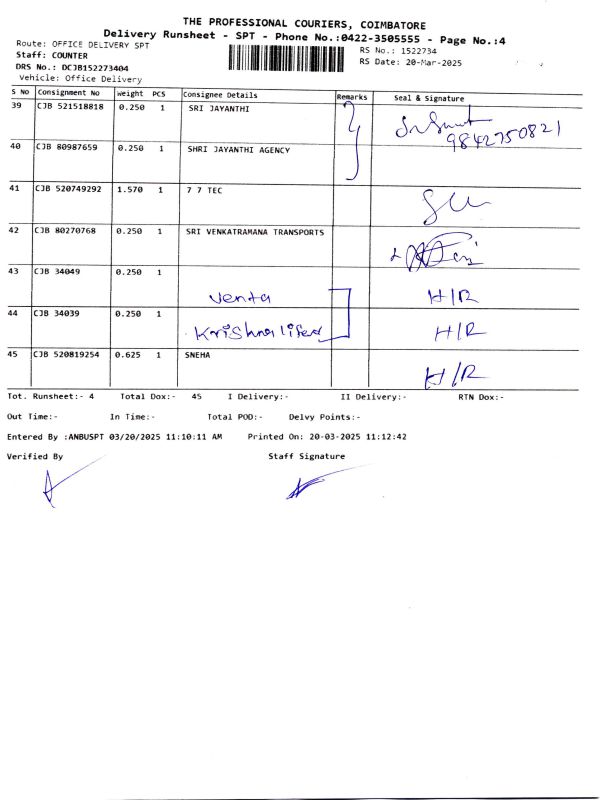 THE PROFESSIONAL COURIERS, COIMBATORE
Delivery Runsheet - SPT - Phone No.:0422-3505555 - Page No.:4
Route: OFFICE DELIVERY SPT
RS No.: 1522734
Staff: COUNTER
RS Date: 20-Mar-2025
DRS No.: DCJB152273404
Vehicle: Office Delivery
S No Consignment No Weight PCS Consignee Details Remarks Seal & Signature
39 CJB 521518818 0.250 1 SRI JAYANTHI
9842750821
40 CJB 80987659 0.250 1 SHRI JAYANTHI AGENCY
41 CJB 520749292 1.570 1 7 7 TEC
42 CJB 80270768 0.250 1 SRI VENKATRAMANA TRANSPORTS
43 CJB 34049 0.250 1
Venta H/R
44 CJB 34039 0.250 1
Krishna H/R
45 CJB 520819254 0.625 1 SNEHA
H/R
Tot. Runsheet:- 4 Total Dox:- 45 I Delivery:- II Delivery:- RTN Dox:-
Out Time:- In Time:- Total POD:- Delvy Points:-
Entered By :ANBUSPT 03/20/2025 11:10:11 AM Printed On: 20-03-2025 11:12:42
Verified By Staff Signature